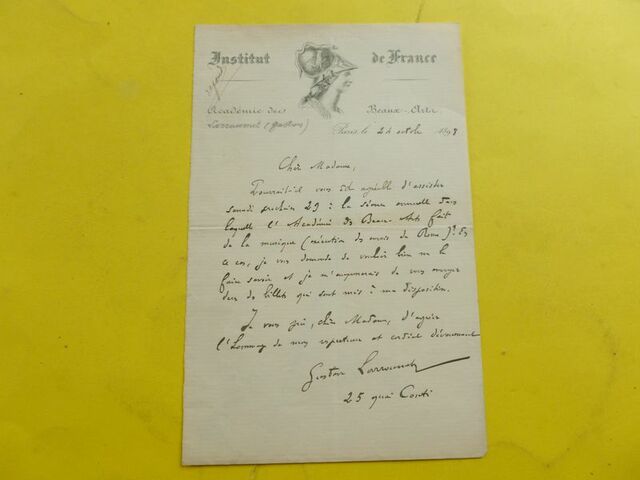 Institut de France
Académie des Beaux-Arts
Larroumet (Gustave)
Paris le 24 octobre 1898
Chère Madame,
Pourrait-il vous être agréable d'assister
samedi prochain 29 à la séance annuelle dans
laquelle l'Académie des Beaux-Arts fait
de la musique (exécution des envois de Rome)? En
ce cas, je vous demande de vouloir bien me le
faire savoir et je m'empresserais de vous envoyer
deux des billets qui sont mis à ma disposition.
Je vous prie, chère Madame, d'agréer
l'hommage de mon respectueux et cordial dévouement
Gustave Larroumet
25 quai Conti